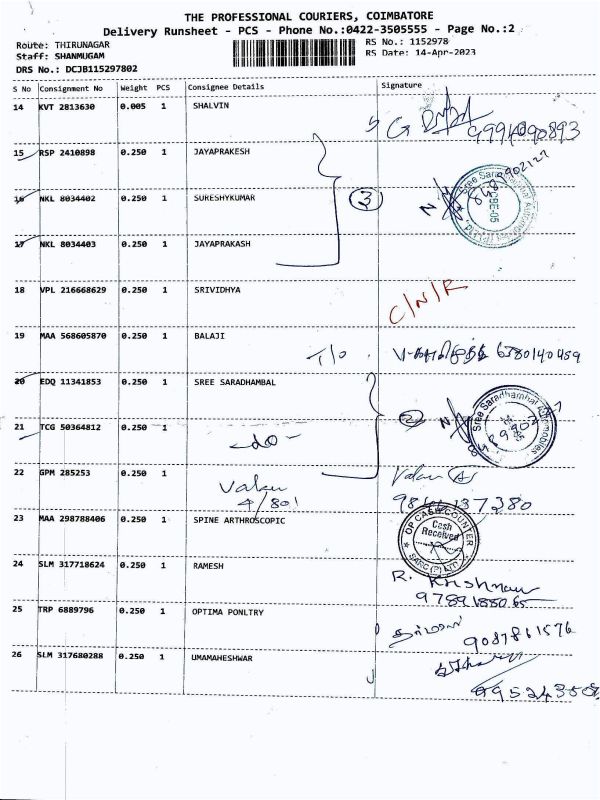 THE PROFESSIONAL COURIERS, COIMBATORE
Delivery Runsheet - PCS - Phone No.:0422-3505555 - Page No.:2
Route: THIRUNAGAR
Staff: SHANMUGAM
RS No.: 1152978
RS Date: 14-Apr-2023
DRS No.: DCJB115297802
S No Consignment No Weight PCS Consignee Details Signature
14 KVT 2813630 0.005 1 SHALVIN
15 RSP 2410898 0.250 1 JAYAPRAKESH
16 NKL 8034402 0.250 1 SURESHYKUMAR
3
17 NKL 8034403 0.250 1 JAYAPRAKASH
18 VPL 216668629 0.250 1 SRIVIDHYA
C/N/R
19 MAA 568605870 0.250 1 BALAJI
T/o
6380140459
20 EDQ 11341853 0.250 1 SREE SARADHAMBAL
Sree Saradhambal Automobiles
21 TCG 50364812 0.250 1
-do-
2
22 GPM 285253 0.250 1
23 MAA 298788406 0.250 1 SPINE ARTHROSCOPIC
OP CASH COUNTER
Cash
Received
SARC (P) LTD
24 SLM 317718624 0.250 1 RAMESH
R. Krishnan
25 TRP 6889796 0.250 1 OPTIMA PONLTRY
9087861576
26 SLM 317680288 0.250 1 UMAMAHESHWAR